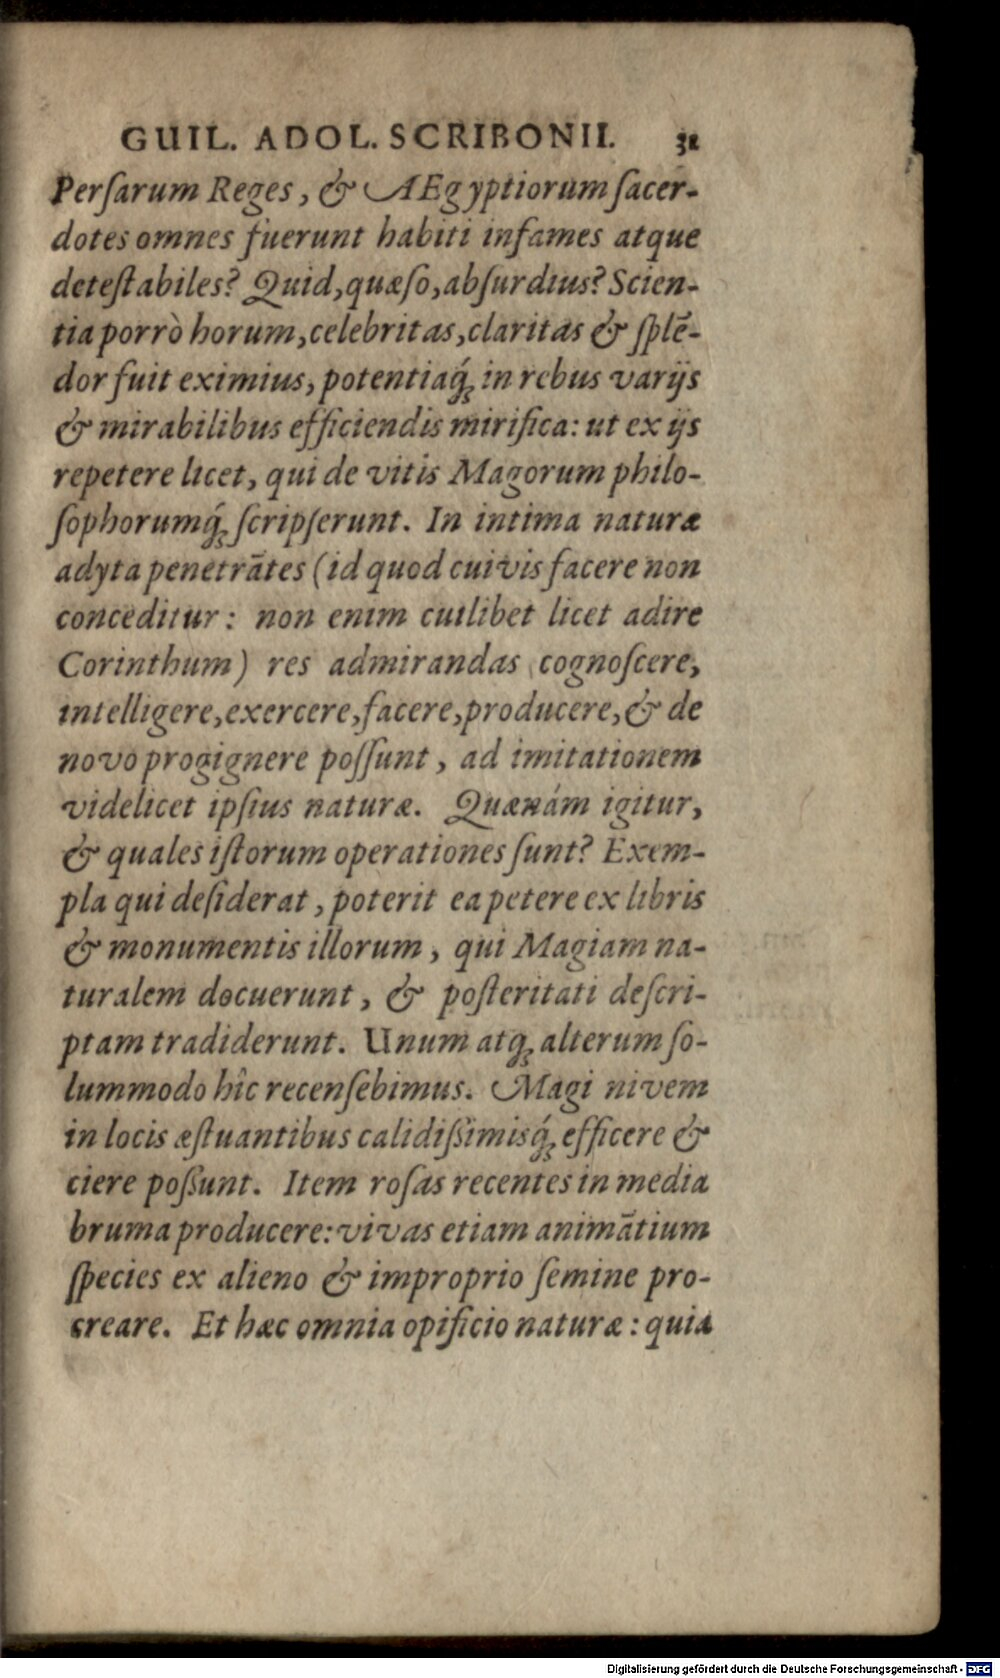 GUIL. ADOL. SCRIBONII. 32
Perſarum Reges, & AEgyptiorum ſacer-
dotes omnes fuerunt habiti infames atque
deteſtabiles? Quid, quæſo, abſurdius? Scien-
tia porrò horum, celebritas, claritas & ſplē-
dor fuit eximius, potentiaq́; in rebus varijs
& mirabilibus efficiendis mirifica: ut ex ijs
repetere licet, qui de vitis Magorum philo-
ſophorumq́; ſcripſerunt. In intima naturæ
adyta penetrātes (id quod cuivis facere non
conceditur: non enim cuilibet licet adire
Corinthum) res admirandas cognoſcere,
intelligere, exercere, facere, producere, & de
novo progignere poſſunt, ad imitationem
videlicet ipſius naturæ. Quænám igitur,
& quales iſtorum operationes ſunt? Exem-
pla qui deſiderat, poterit ea petere ex libris
& monumentis illorum, qui Magiam na-
turalem docuerunt, & poſteritati deſcri-
ptam tradiderunt. Unum atq; alterum ſo-
lummodo hîc recenſebimus. Magi nivem
in locis æſtuantibus calidißimisq́; efficere &
ciere poßunt. Item roſas recentes in media
bruma producere: vivas etiam animātium
ſpecies ex alieno & improprio ſemine pro-
creare. Et hæc omnia opificio naturæ: quia
Digitalisierung gefördert durch die Deutsche Forschungsgemeinschaft - DFG